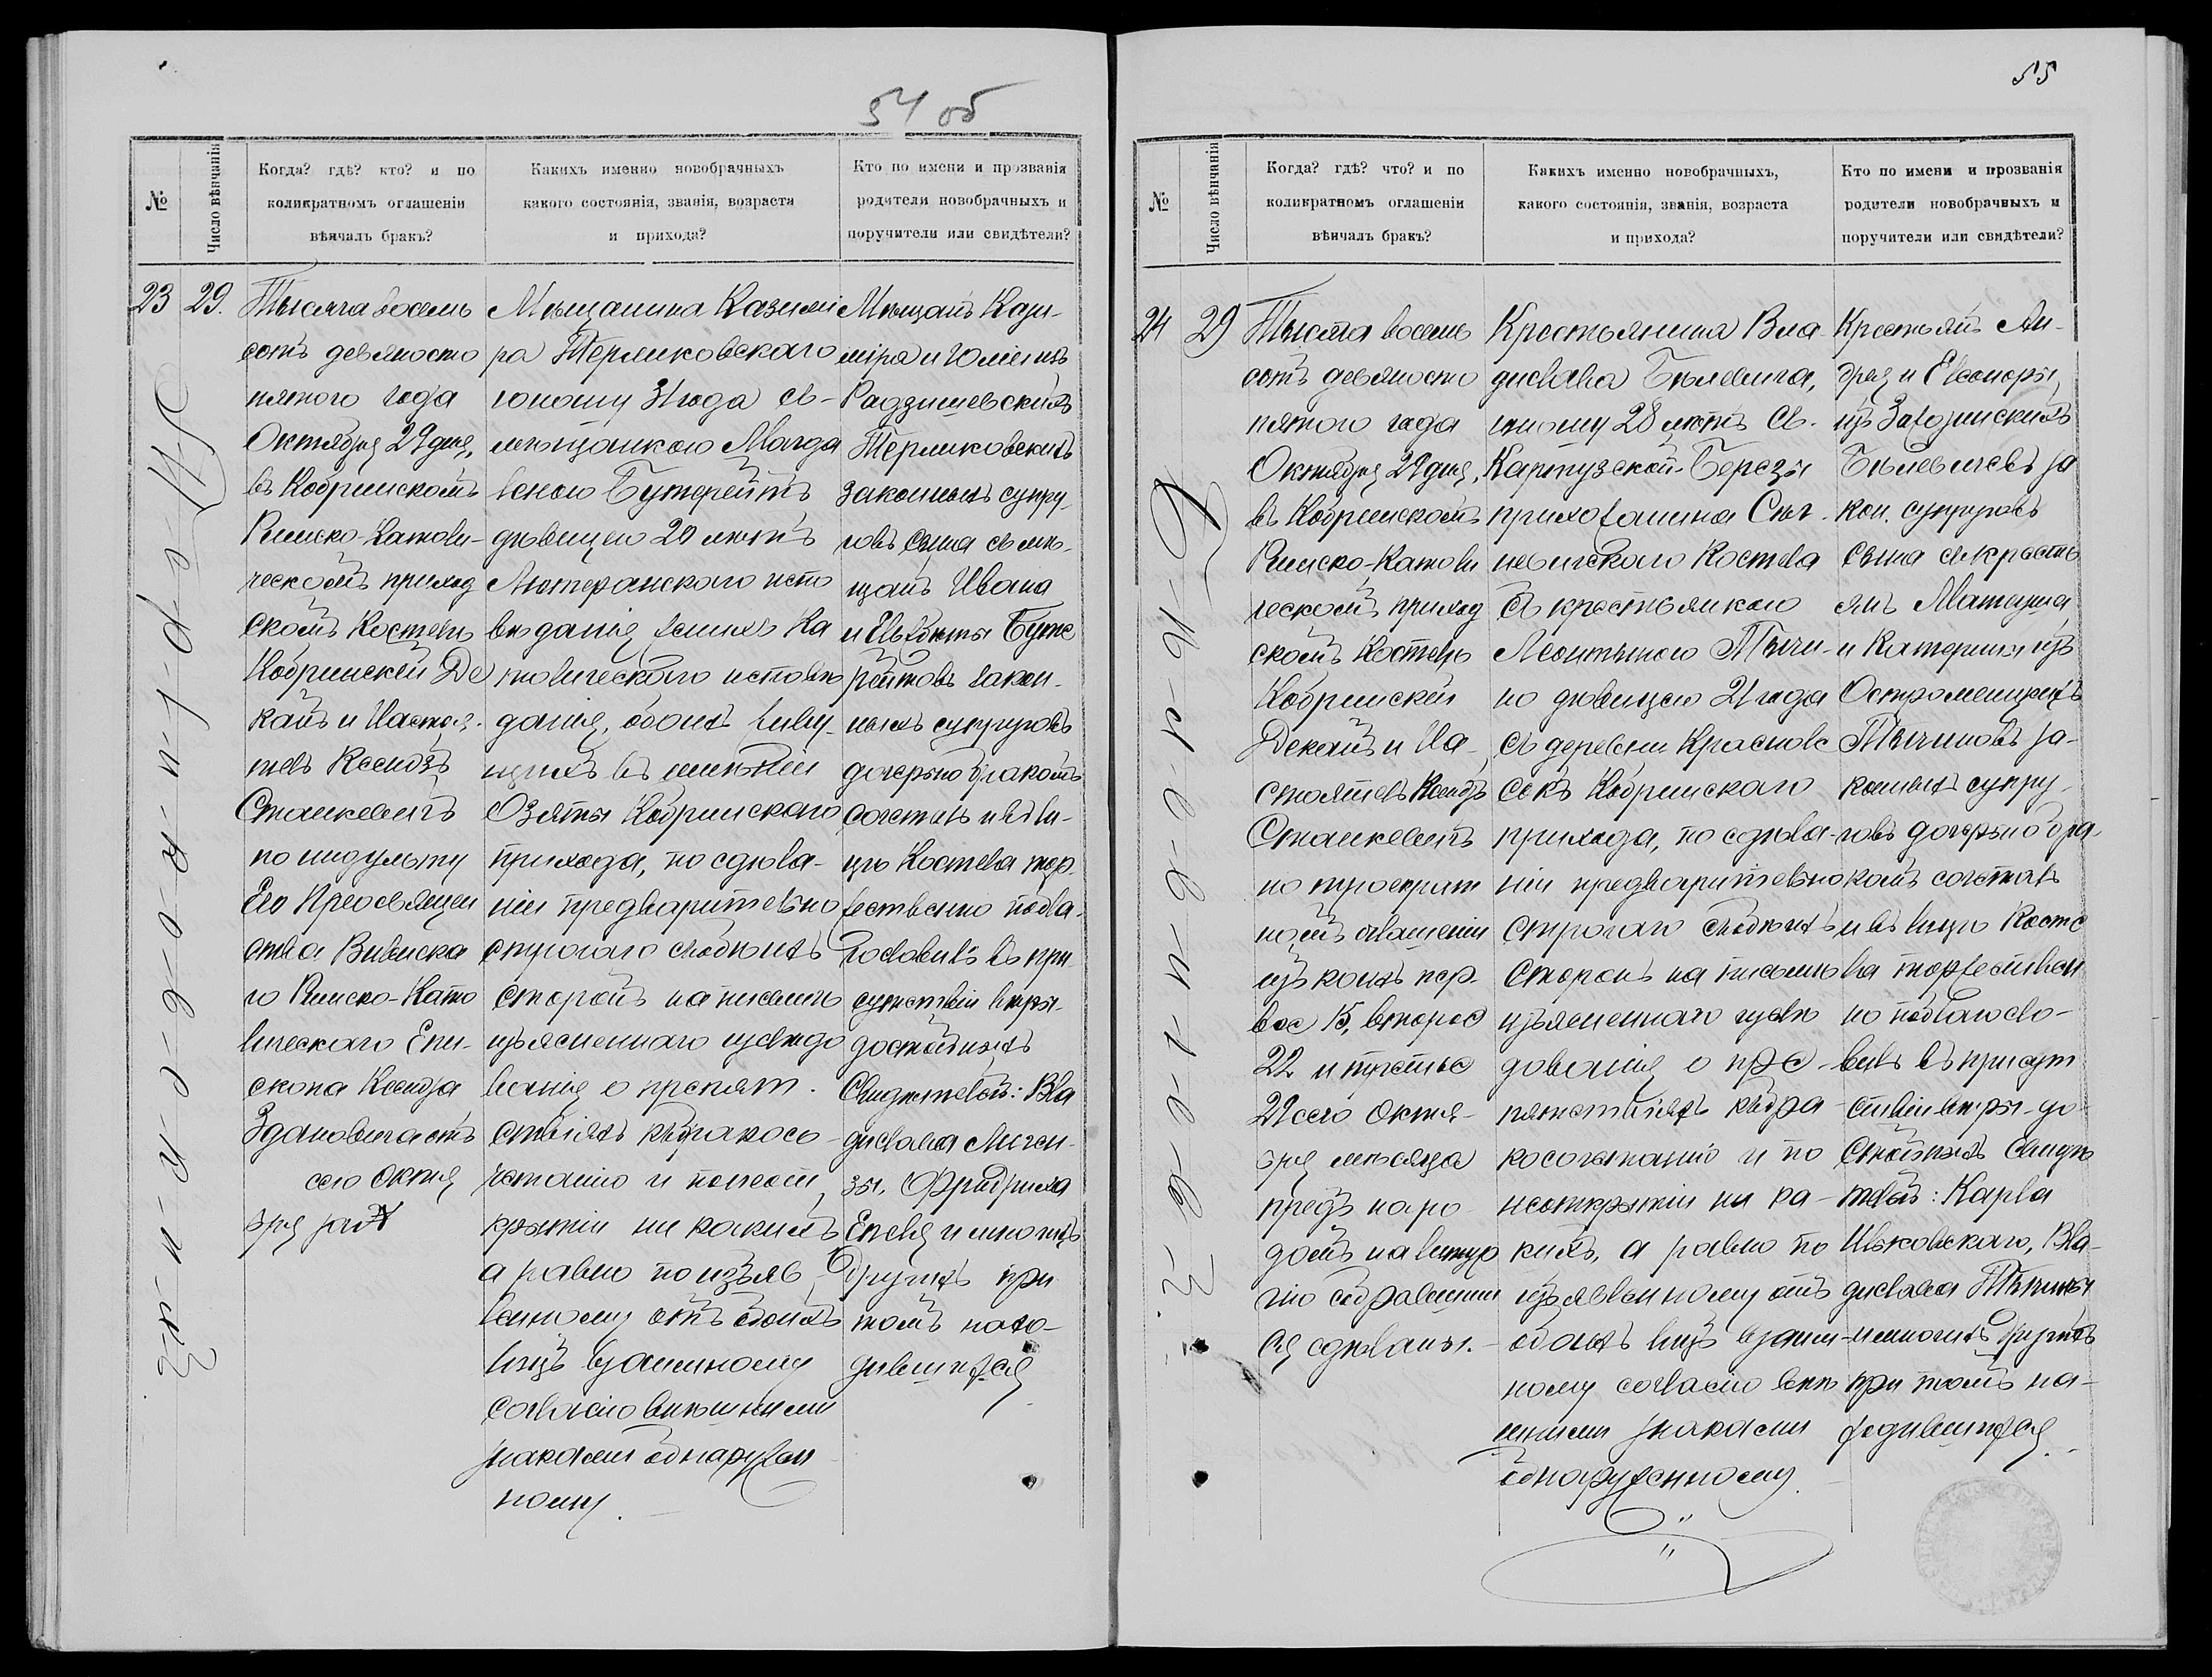 54 об
№
Число вѣнчанія
Когда? гдѣ? кто? и по
коликратномъ оглашеніи
вѣнчалъ бракъ?
Какихъ именно новобрачныхъ
какого состоянія, званія, возраста
и прихода?
Кто по имени и прозванія
родители новобрачныхъ и
поручители или свидѣтели?
23
29.
Тысяча восемь
сотъ девяносто
пятого года
Октября 29 дня,
въ Кобринскомъ
Римско-Католи-
ческомъ приход
скомъ Костелѣ
Кобринскій Де
канъ и Настоя-
тель Ксендзъ
Станкевичъ
по индульту
Его Преосвящен
ства Виленска
го Римско-Като
лическаго Епи-
скопа Ксендза
Здановича отъ
сего Октя
бря за №
Мѣщанина Казими
ра Терликовскаго
юношу 31 года съ
мѣщанкою Магда
леною Бутерейтъ
дѣвицею 20 лѣтъ
Лютеранского испо
вѣданія женихъ Ка
толическаго исповѣ
данія, обоихъ живу-
щихъ въ имѣніи
Озяты Кобринскаго
прихода, по сдѣла-
ніи предварительно
строгаго обоюдныхъ
сторонъ на письмѣ
изъясненнаго изслѣдо
ванія о препят-
ствіяхъ къ бракосо-
четанію и по неот
крытіи ни какихъ
а равно по изъяв-
ленному отъ обоихъ
лицъ взаимному
согласію внѣшними
знаками обнаружен
ному.
Мѣщанъ Кази-
міра и Юліи изъ
Радзишевскихъ
Терликовскихъ
законныхъ супру-
говъ сына съ мѣ-
щанъ Ивана
и Бутс
рейтовъ закон-
ныхъ супруговъ
дочерью бракомъ
сочеталъ и въ ли-
цѣ Костела тор-
жественно побла-
гословилъ въ при-
сутствіи вѣры-
достойныхъ
Свидѣтелей: Вла
дислава
Фридриха
и многихъ
другихъ при
томъ нахо-
дившихся.
55
№
Число вѣнчанія
Когда? гдѣ? что? и по
коликратномъ оглашеніи
вѣнчалъ бракъ?
Какихъ именно новобрачныхъ,
какого состоянія, званія, возраста
и прихода?
Кто по имени и прозванія
родители новобрачныхъ и
поручители или свидѣтели?
24
29
Тысяча восемь
сотъ девяносто
пятого года
Октября 29 дня,
въ Кобринскомъ
Римско-Католи
ческомъ приход
скомъ Костелѣ
Кобринскій
Деканъ и На-
стоятель Ксендзъ
Станкевичъ
по троекрат
номъ оглашеніи
изъ коихъ пер-
вое 15, второе
22 и третье
29 сего Октя-
бря мѣсяца
предъ наро-
домъ на литур
гію собравшим
ся сдѣланы.
Крестьянина Вла-
дислава Бѣлевича,
юношу 28 лѣтъ съ
Картузской-Березы
прихожанина Сѣг-
невичскаго Костела
съ крестьянкою
Леонтиною Тычи-
но дѣвицею 21 года
съ деревни Красновс
Кобринскаго
прихода, по сдѣла-
ніи предварительно
строгаго обоюдныхъ
сторонъ на письмѣ
изъясненнаго изслѣ
дованія о пре-
пятствіяхъ къ бра-
косочетанію и по
неоткрытіи ни ка-
кихъ, а равно по
изъявленному отъ
обоихъ лицъ взаим-
ному согласію внѣ
шними знаками
обнаруженному.
Крестьянъ Ан-
дрея и Елеоноры
изъ
Бѣлевичевъ за
кон. супруговъ
сына съ кресть
янъ Матеуша
и Катерины изъ
Остромецкихъ
Тычиновъ за-
конныхъ супру-
говъ дочерью бра
комъ сочеталъ
и въ лицѣ Косте
ла торжествен
но поблагосло-
вилъ въ присут
ствіи вѣры-до-
стойныхъ Свидѣ
телей: Карла
Ивковскаго, Вла-
дислава Тычины
и многихъ другихъ
при томъ на-
ходившихся.